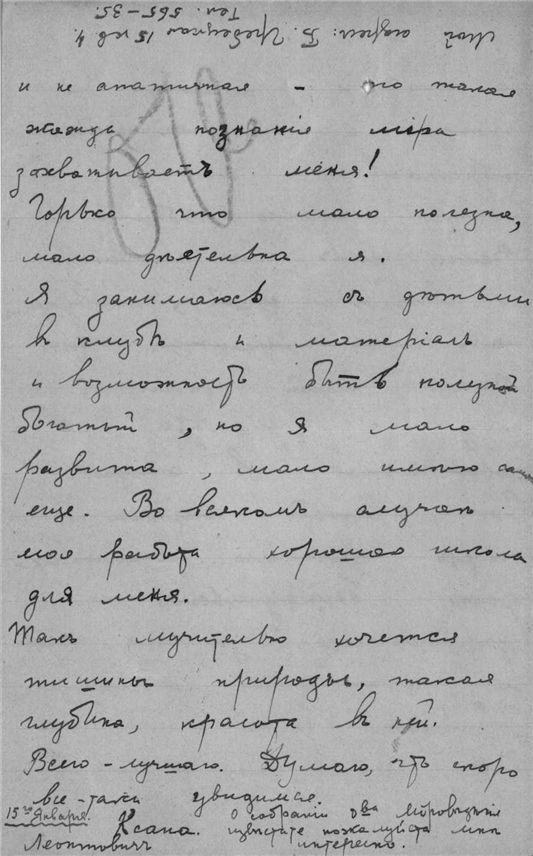 Мой адрес: Б. Гребецкая 15 кв 4
Тел. 565-35.
и не апатичная - но такая
жажда познанія міра
захватываетъ меня!
Горько что мало полезна,
мало дѣятельна я.
Я занимаюсь съ дѣтьми
въ клубѣ и матеріалъ
и возможность быть полезной
богатый, но я мало
развита, мало имѣю
еще. Во всякомъ случаѣ
моя работа хорошая школа
для меня.
Такъ мучительно хочется
тишины природы, такая
глубина, красота въ ней.
Всего-лучшаго. Думаю, что скоро
все-таки увидимся.
15го Января. О собраніи О-ва Міровѣдѣнія
Ксана. извѣстите пожалуйста мнѣ
Леонтовичъ интересно.